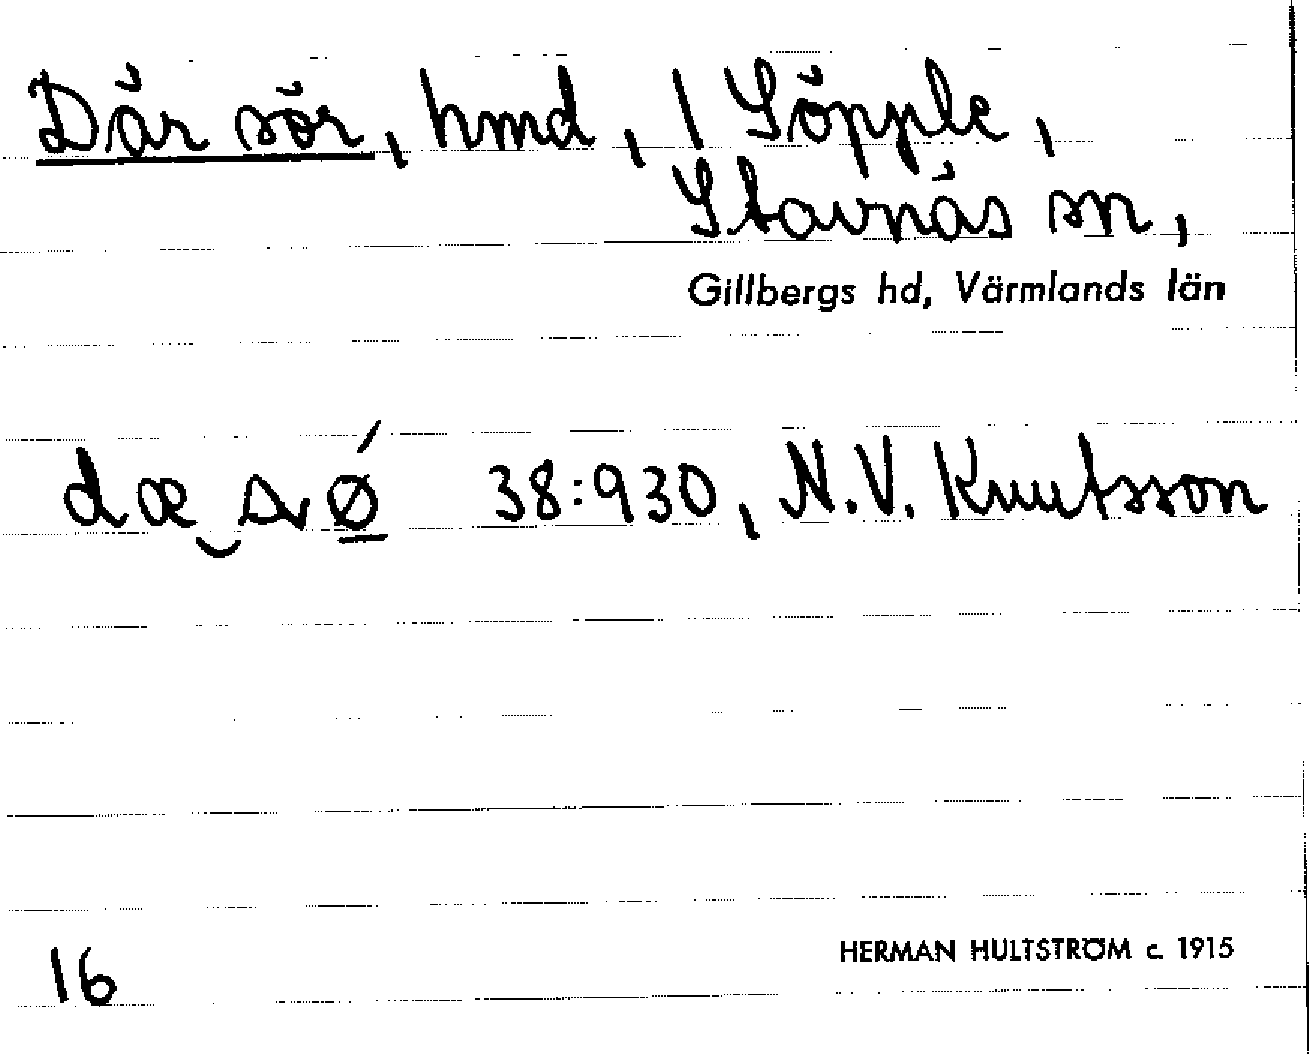 Där sör, hmd, 1 Söpple,
Stavnäs sn,
Gillbergs hd, Värmlands län
dæ‿sǿ̲ 38:930, N.V. Knutsson
16
HERMAN HULTSTRÖM c. 1915